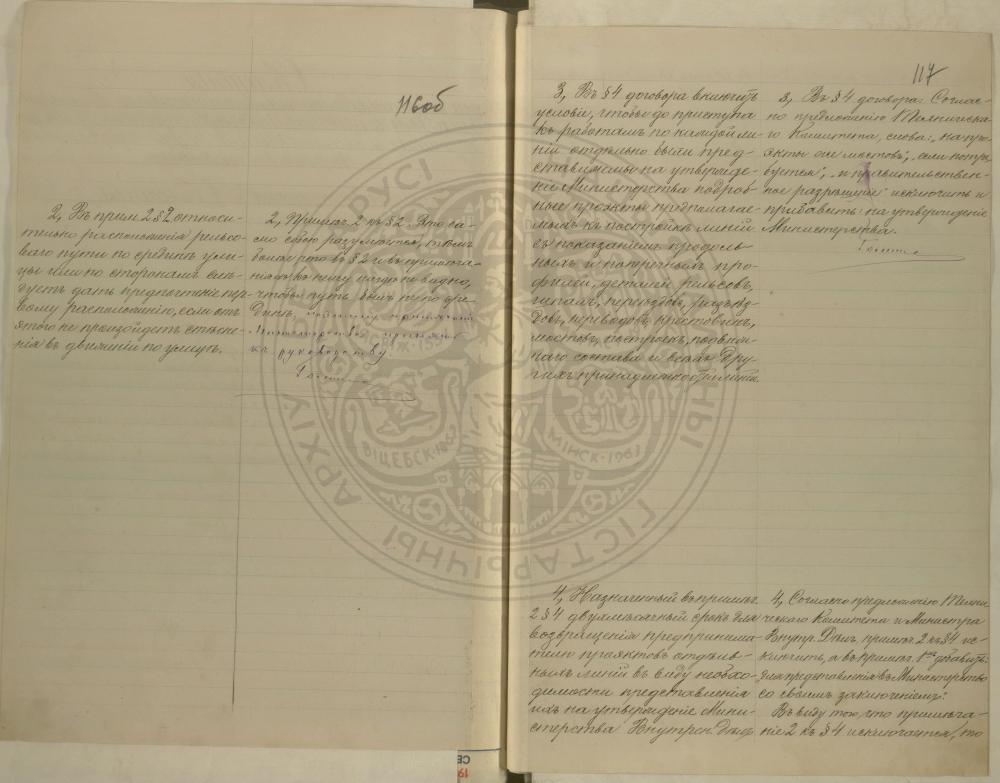 116об
2, Въ прим. 2 § 2, относи-
тельно расположенія рельсо-
ваго пути по срединѣ ули-
цы или по сторонамъ слѣ-
дуетъ дать предпочтеніе пер-
вому расположенію, если отъ
этого не произойдетъ стѣсне-
нія въ движеніи по улицѣ.
2, Примѣч. 2 къ § 2. Это са-
мо собою разумѣется, тѣмъ
болѣе что въ § 2 и въ примѣча-
ніяхъ къ нему нигдѣ не видно,
чтобы путь былъ не по сре-
динѣ,
Министерства принять
къ руководству.
117
3, Въ § 4 договора включить
условіе, чтобы до приступа
къ работамъ по каждой ли-
ніи отдѣльно были пред-
ставляемы на утвержде-
ніе Министерства подроб-
ные проэкты предполагае-
мыхъ къ постройкѣ линій
съ показаніемъ продоль-
ныхъ и поперечныхъ про-
филей, деталей рельсовъ,
шпалъ, переѣздовъ, разъѣз-
довъ, переводовъ, крестовинъ,
мостовъ, построекъ, подвиж-
наго состава и всѣхъ дру-
гихъ принадлежностей пути.
3, Въ § 4 договора: Соглас-
но предложенію Техническа-
го Комитета, слова: „на про-
экты же мостовъ, если потре-
буется, и правительствен-
ное разрѣшеніе" исключить и
прибавить: на утвержденіе
Министерства.
4, Назначенный въ примѣч.
2 § 4 двухмѣсячный срокъ для
возвращенія предпринима-
телю проэктовъ отдѣль-
ныхъ линій въ виду необхо-
димости представленія
ихъ на утвержденіе Мини-
стерства Внутрен. Дѣлъ
4, Согласно предложенію Техни-
ческаго Комитета и Министра
Внутр. Дѣлъ, примѣч. 2 къ § 4 ис-
ключить, а въ примѣч. 1ое добавить:
для представленія въ Министерство
со своимъ заключеніемъ.
Въ виду того, что примѣча-
ніе 2 къ § 4 исключается, то
ВІЦЕБСК·1862
МІНСК·1963
ГІСТАРЫЧНЫ
АРХІЎ